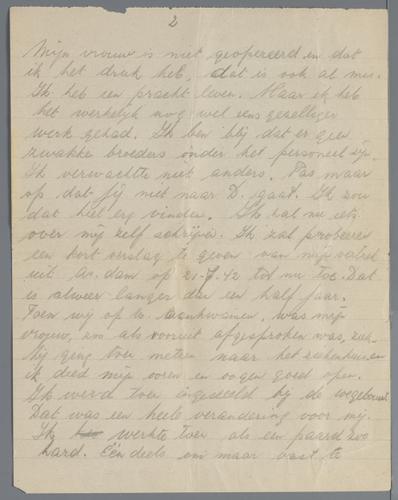 2
Mijn vrouw is niet geopereerd en dat
ik het druk heb, dat is ook al mis.
Ik heb een pracht leven. Maar ik heb
het werkelijk nog wel eens gezelliger
werk gehad. Ik ben blij dat er geen
zwakke broeders onder het personeel zijn.
Ik verwachtte niet anders. Pas maar
op dat jij niet naar D. gaat. Ik zou
dat heel erg vinden. Ik zal nu iets
over mij zelf schrijven. Ik zal probeeren
een kort verslag te geven van mijn vertrek
uit As. dam op 21-7-42 tot nu toe. Dat
is alweer langer dan een half jaar.
Toen wij op te. aankwamen, was mijn
vrouw, zoo als vooruit afgesproken was, ziek.
Zij ging toen meteen naar het ziekenhuis en
ik deed mijn ooren en oogen goed open.
Ik werd toen ingedeeld bij de wegenbouw.
Dat was een heele verandering voor mij.
Ik werkte toen als een paard zoo
hard. Eén deels om maar vast te